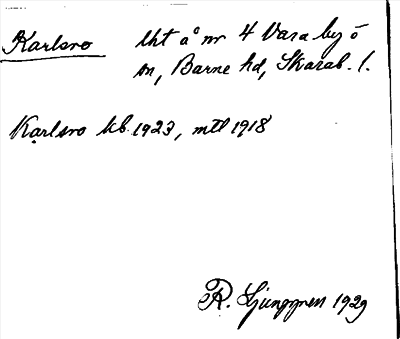 Karlsro lht å nr 4 Vara by o
sn, Barne hd, Skarab. l.
Karlsro kb 1923, mtl 1918
R. Ljunggren 1929